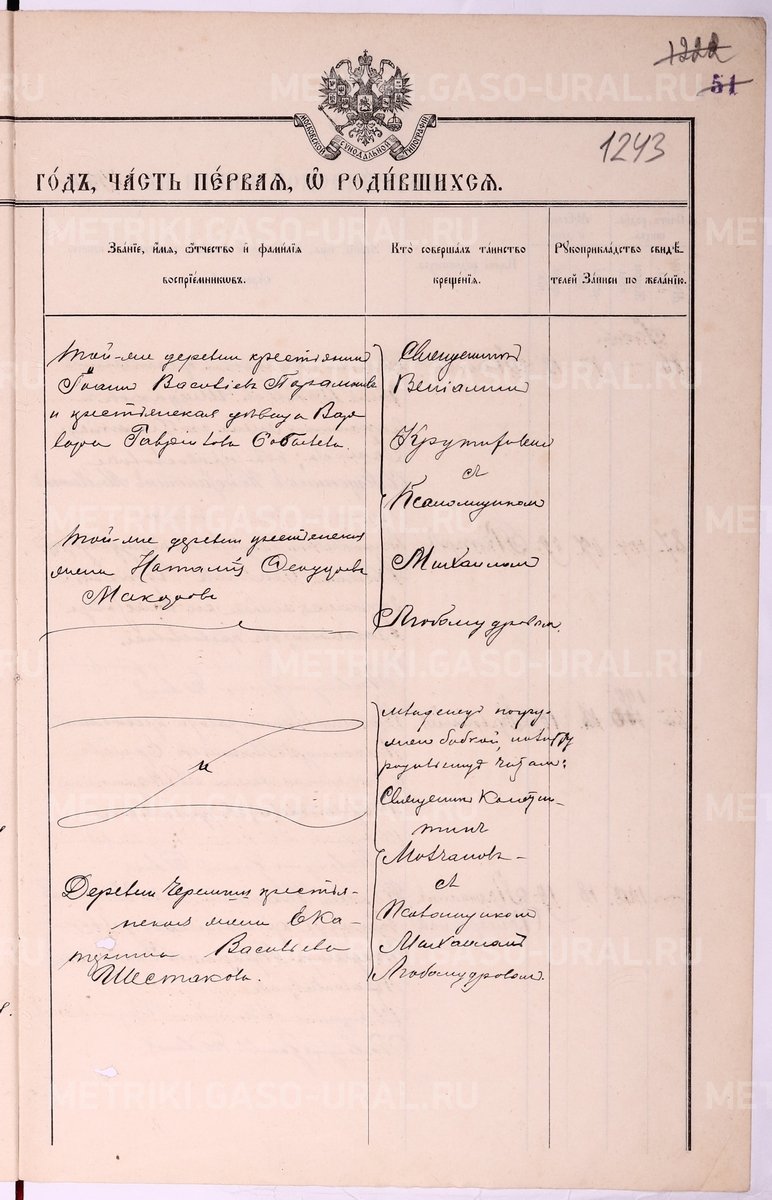 1222
51
1243
МОСКОВСКОЙ СѴНОДАЛЬНОЙ ТИПОГРАФІИ
ГО́ДЪ, ЧА́СТЬ ПЕ́РВАЯ, Ѡ҆ РОДИ́ВШИХСЯ.
Зва́нїе, и҆́мя, ѻ҆́тчество и҆ фами́лїя
воспрїе́мникѡвъ.
Кто̀ соверша́лъ та́инство
креще́нїя.
Рꙋкоприкла́дство свидѣ́-
телей За́писи по жела́нїю.
Той-же деревни крестьянинъ
Іоаннъ Васильевъ
и крестьянская дѣвица Вар-
вара Гаврилова
Священникъ
Веніаминъ
съ
Псаломщикомъ
Михаиломъ
Любомудровымъ.
Той-же деревни крестьянская
жена Наталія Ѳеодорова
Макарова
младенецъ погру-
женъ бабкой,
Священникъ Констан-
тинъ
Молчановъ
съ
Псаломщикомъ
Михаиломъ
Любомудровымъ.
Деревни Черемиш крестья-
нская жена Ека-
терина Васильева
Шестакова.
METRIKI.GASO-URAL.RU